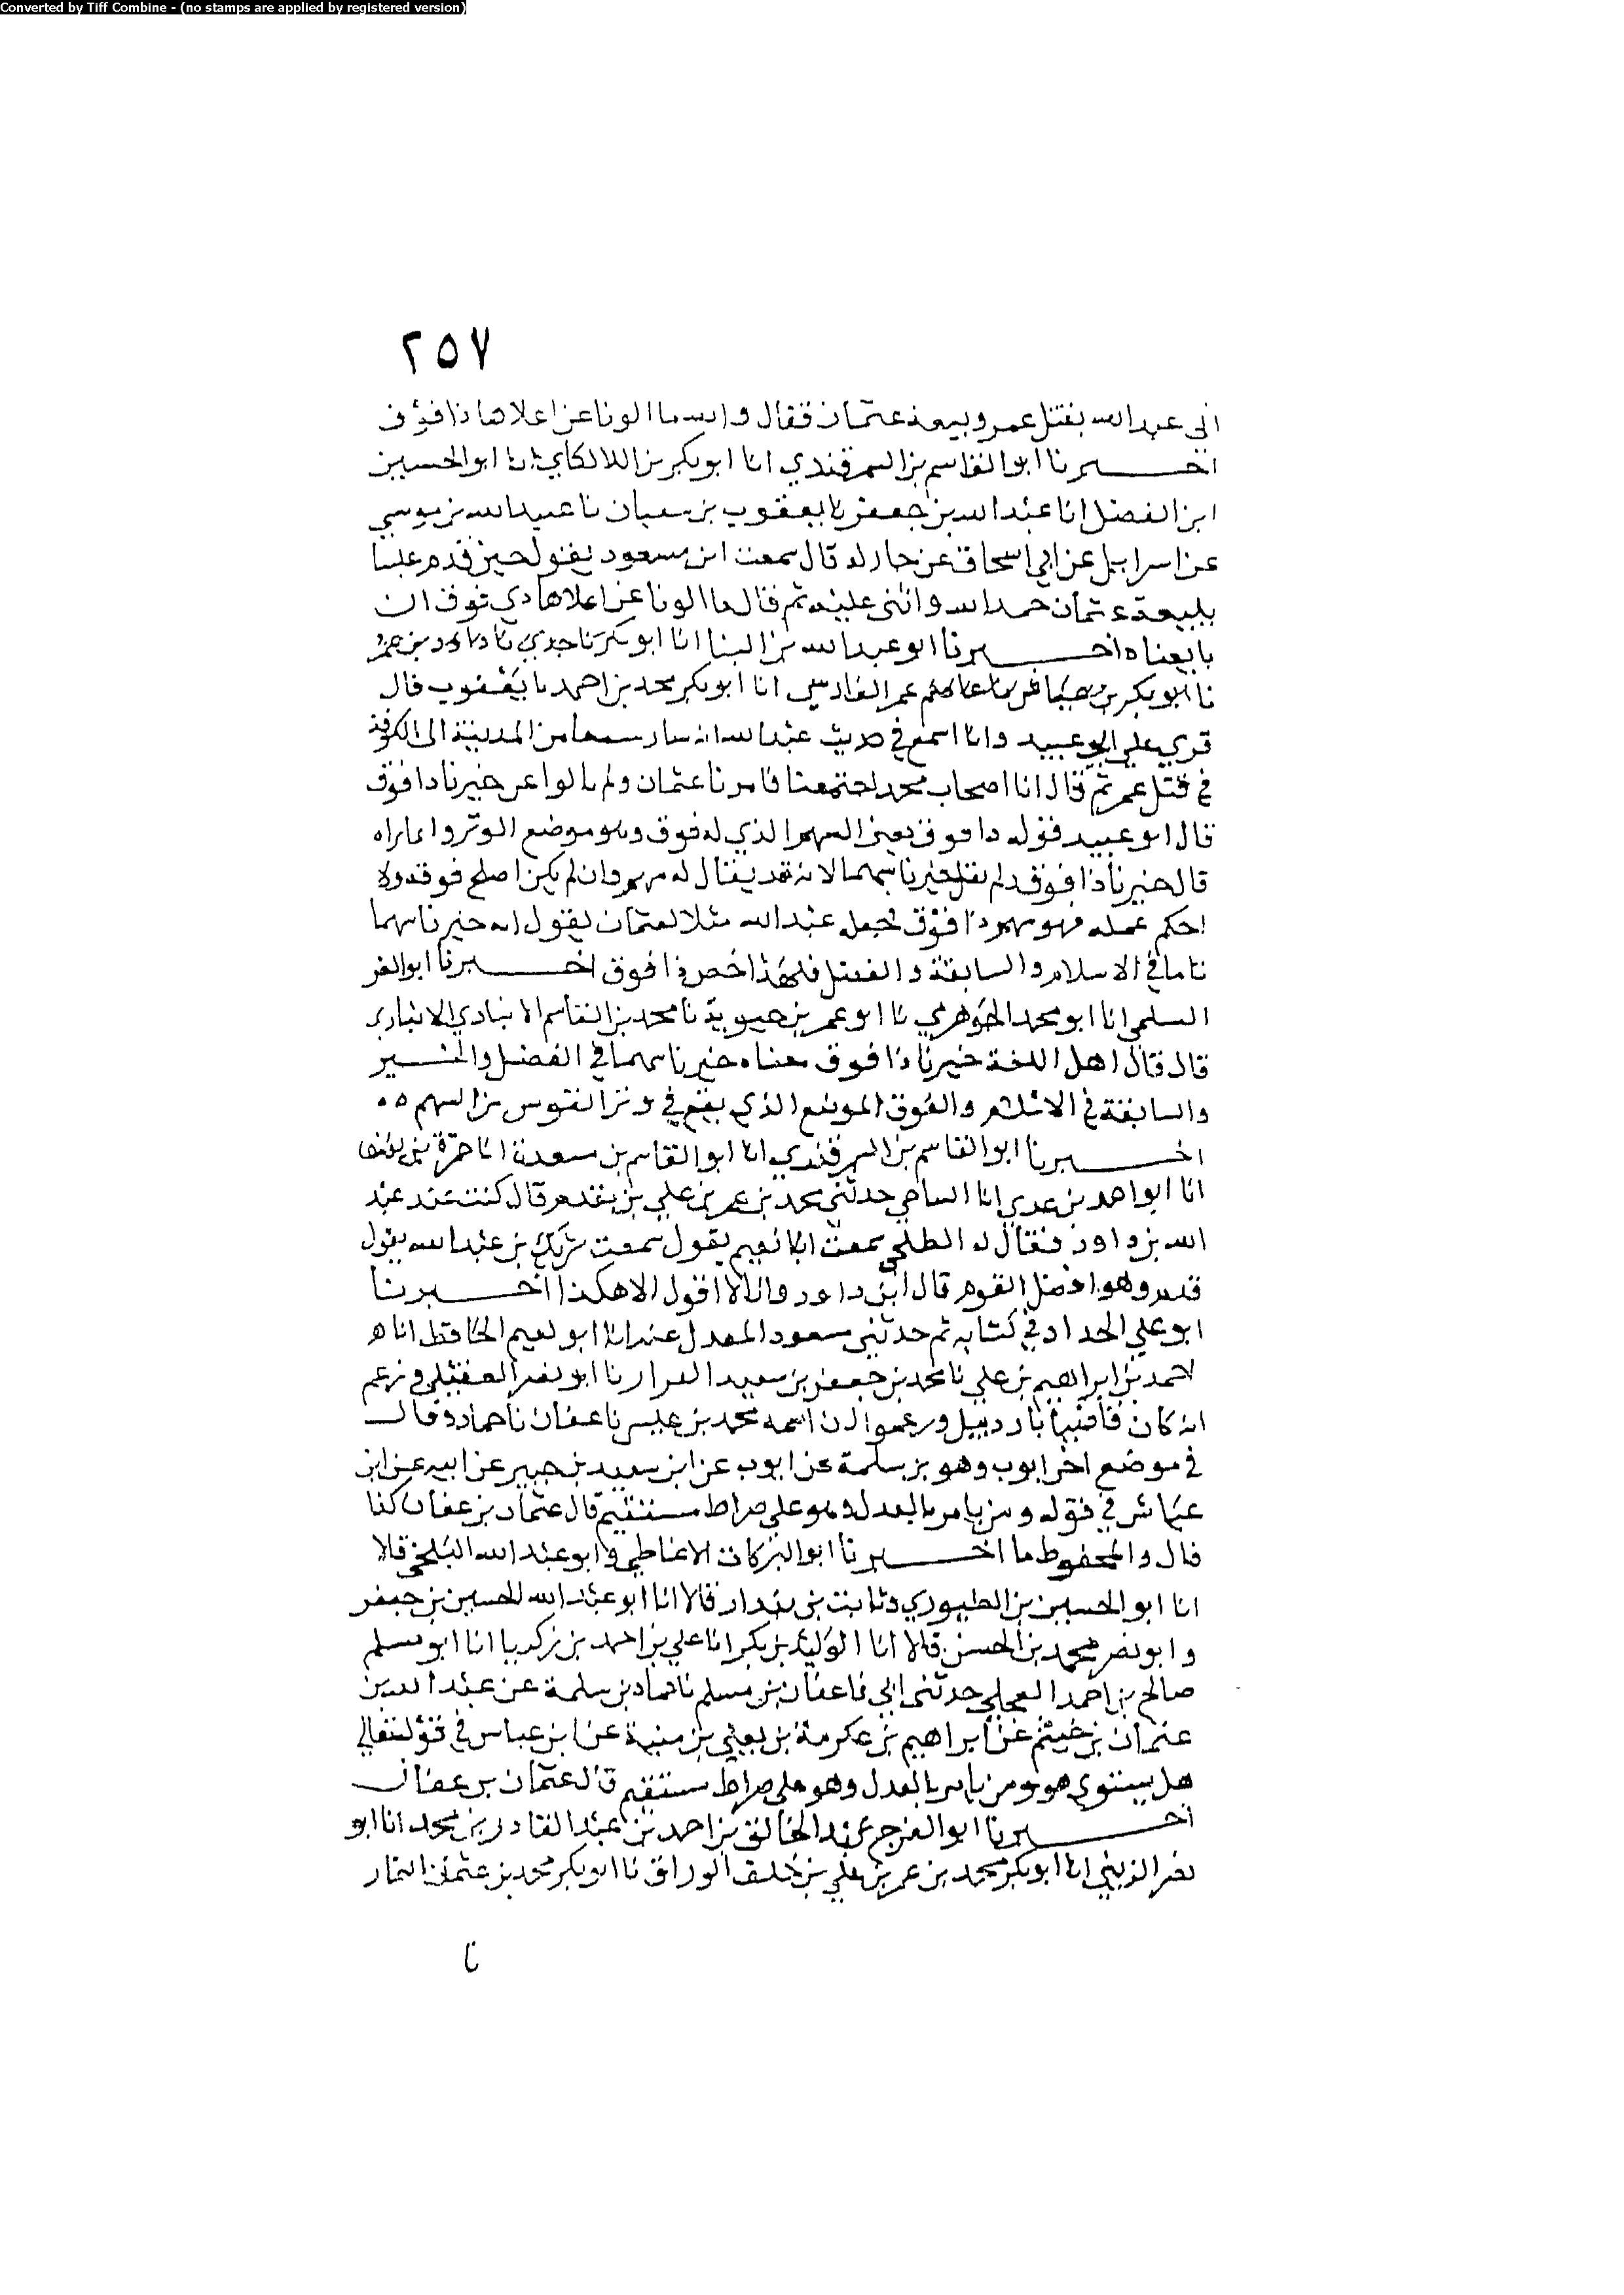 Converted by Tiff Combine - (no stamps are applied by registered version)
٢٥٧
الى عبد الله بقتل عمر وبيعة عثمان فقال والله ما الونا عن اعلاها ذا فوق
اخبرنا ابو القاسم بن السمرقندي انا ابو بكر بن اللالكاي انا ابو الحسين
ابن الفضل انا عبد الله بن جعفر نا يعقوب بن سفيان نا عبيد الله بن موسى
عن اسراييل عن ابي اسحاق عن قال سمعت ابن مسعود يقول حين قدم علينا
ببيعة عثمان حمد الله واثنى عليه ثم قال ما الونا عن اعلاها ذي فوق ان
بايعناه اخبرنا ابو عبد الله بن البنا انا ابو بكر نا جدي نا
نا ابو بكر عمر الفارسي انا ابو بكر محمد بن احمد نا يعقوب قال
قري على ابي عبيد وانا اسمع في حديث عبد الله انه سار سبعا من المدينة الى الكوفة
في قتل عمر ثم قال انا اصحاب محمد اجتمعنا فامرنا عثمان ولم نالوا عن خيرنا ذا فوق
قال ابو عبيد قوله ذا فوق يعني السهم الذي له فوق وهو موضع الوتر وانما نراه
قال خيرنا ذا فوق ولم يقل خيرنا سهما لانه قد يقال له سهم وان لم يكن اصلح فوقه ولا
احكم عمله فهو سهم ذا فوق فجعل عبد الله مثلا لعثمان يقول انه خيرنا سهما
تاما في الاسلام والسابقة والفضل فلهذا خص ذا فوق اخبرنا ابو العز
السلمي انا ابو محمد الجوهري نا ابو عمر بن حيوية نا محمد بن القاسم الانباري
قال قال اهل اللغة خيرنا ذا فوق معناه خيرنا سهما في الفضل والخير
والسابقة في الاسلام والفوق الموضع الذي يقع في وتر القوس من السهم
اخبرنا ابو القاسم بن السمرقندي انا ابو القاسم بن مسعدة انا حمزة بن يوسف
انا ابو احمد بن عدي انا الساجي حدثني محمد بن عمر بن علي بن مقدم قال كنت عند عبد
الله بن داود فقال له الطلحي سمعت ابا نعيم يقول سمعت شريك بن عبد الله يقول
قدم وهو افضل القوم قال ابن داود وانا لا اقول الا هكذا اخبرنا
ابو علي الحداد في كتابه ثم حدثني مسعود المعدل عنه انا ابو نعيم الحافظ انا
احمد بن ابراهيم بن علي نا محمد بن جعفر بن سعيد نا ابو نصر وزعم
انه كان قاضيا باردبيل وزعموا ان اسمه محمد بن عيسى نا عفان نا حماد وقال
في موضع اخر ايوب وهو بن سلمة عن ايوب عن ابن سعيد بن جبير عن ابيه عن ابن
عباس في قوله ومن يامر بالعدل وهو على صراط مستقيم قال عثمان بن عفان كذا
قال والمحفوظ ما اخبرنا ابو البركات الانماطي وابو عبد الله البلخي قالا
انا ابو الحسين بن الطيوري وثابت بن بندار قالا انا ابو عبد الله الحسين بن جعفر
وابو نصر محمد بن الحسن قالا انا الوليد بن بكر انا علي بن احمد بن زكريا انا ابو مسلم
صالح بن احمد العجلي حدثني ابي نا عفان بن مسلم نا حماد بن سلمة عن عبد الله بن
عثمان بن خيثم عن ابراهيم بن عكرمة بن يعلى بن منية عن ابن عباس في قوله تعالى
هل يستوي هو ومن يامر بالعدل وهو على صراط مستقيم قال عثمان بن عفان
اخبرنا ابو الفرج عبد الخالق بن احمد بن عبد القادر بن محمد انا ابو
نصر الزينبي انا ابو بكر محمد بن عمر بن علي بن خلف الوراق نا ابو بكر محمد بن عثمان التمار
نا